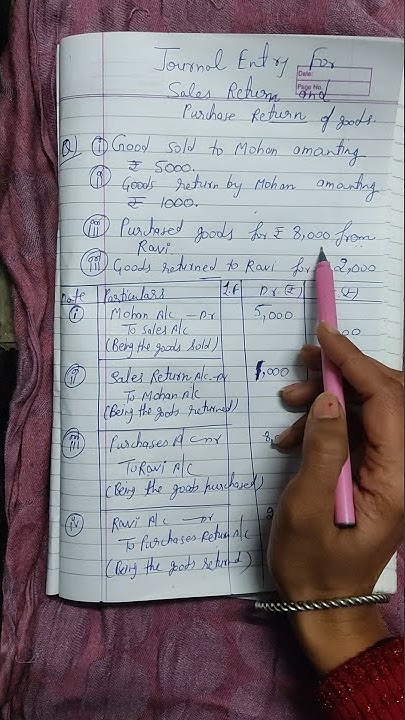 Journal Entry for
Date:
Page No.
Sales Return and
Purchase Return of goods.
Q) i) Good sold to Mohan amanting
₹ 5000.
ii) Goods return by Mohan amanting
₹ 1000.
iii) Purchased goods for ₹ 8,000 from
Ravi.
iiii) Goods returned to Ravi for 2,000
Date Particulars L.F Dr (₹) (₹)
i) Mohan A/c — Dr 5,000
To Sales A/c 00
(Being the goods sold)
ii) Sales Return A/c — Dr 1,000
To Mohan A/c
(Being the goods returned)
iii) Purchases A/c — Dr 8,
To Ravi A/c
(Being the goods purchased)
iv) Ravi A/c — Dr 2
To Purchases Return A/c
(Being the goods returned)